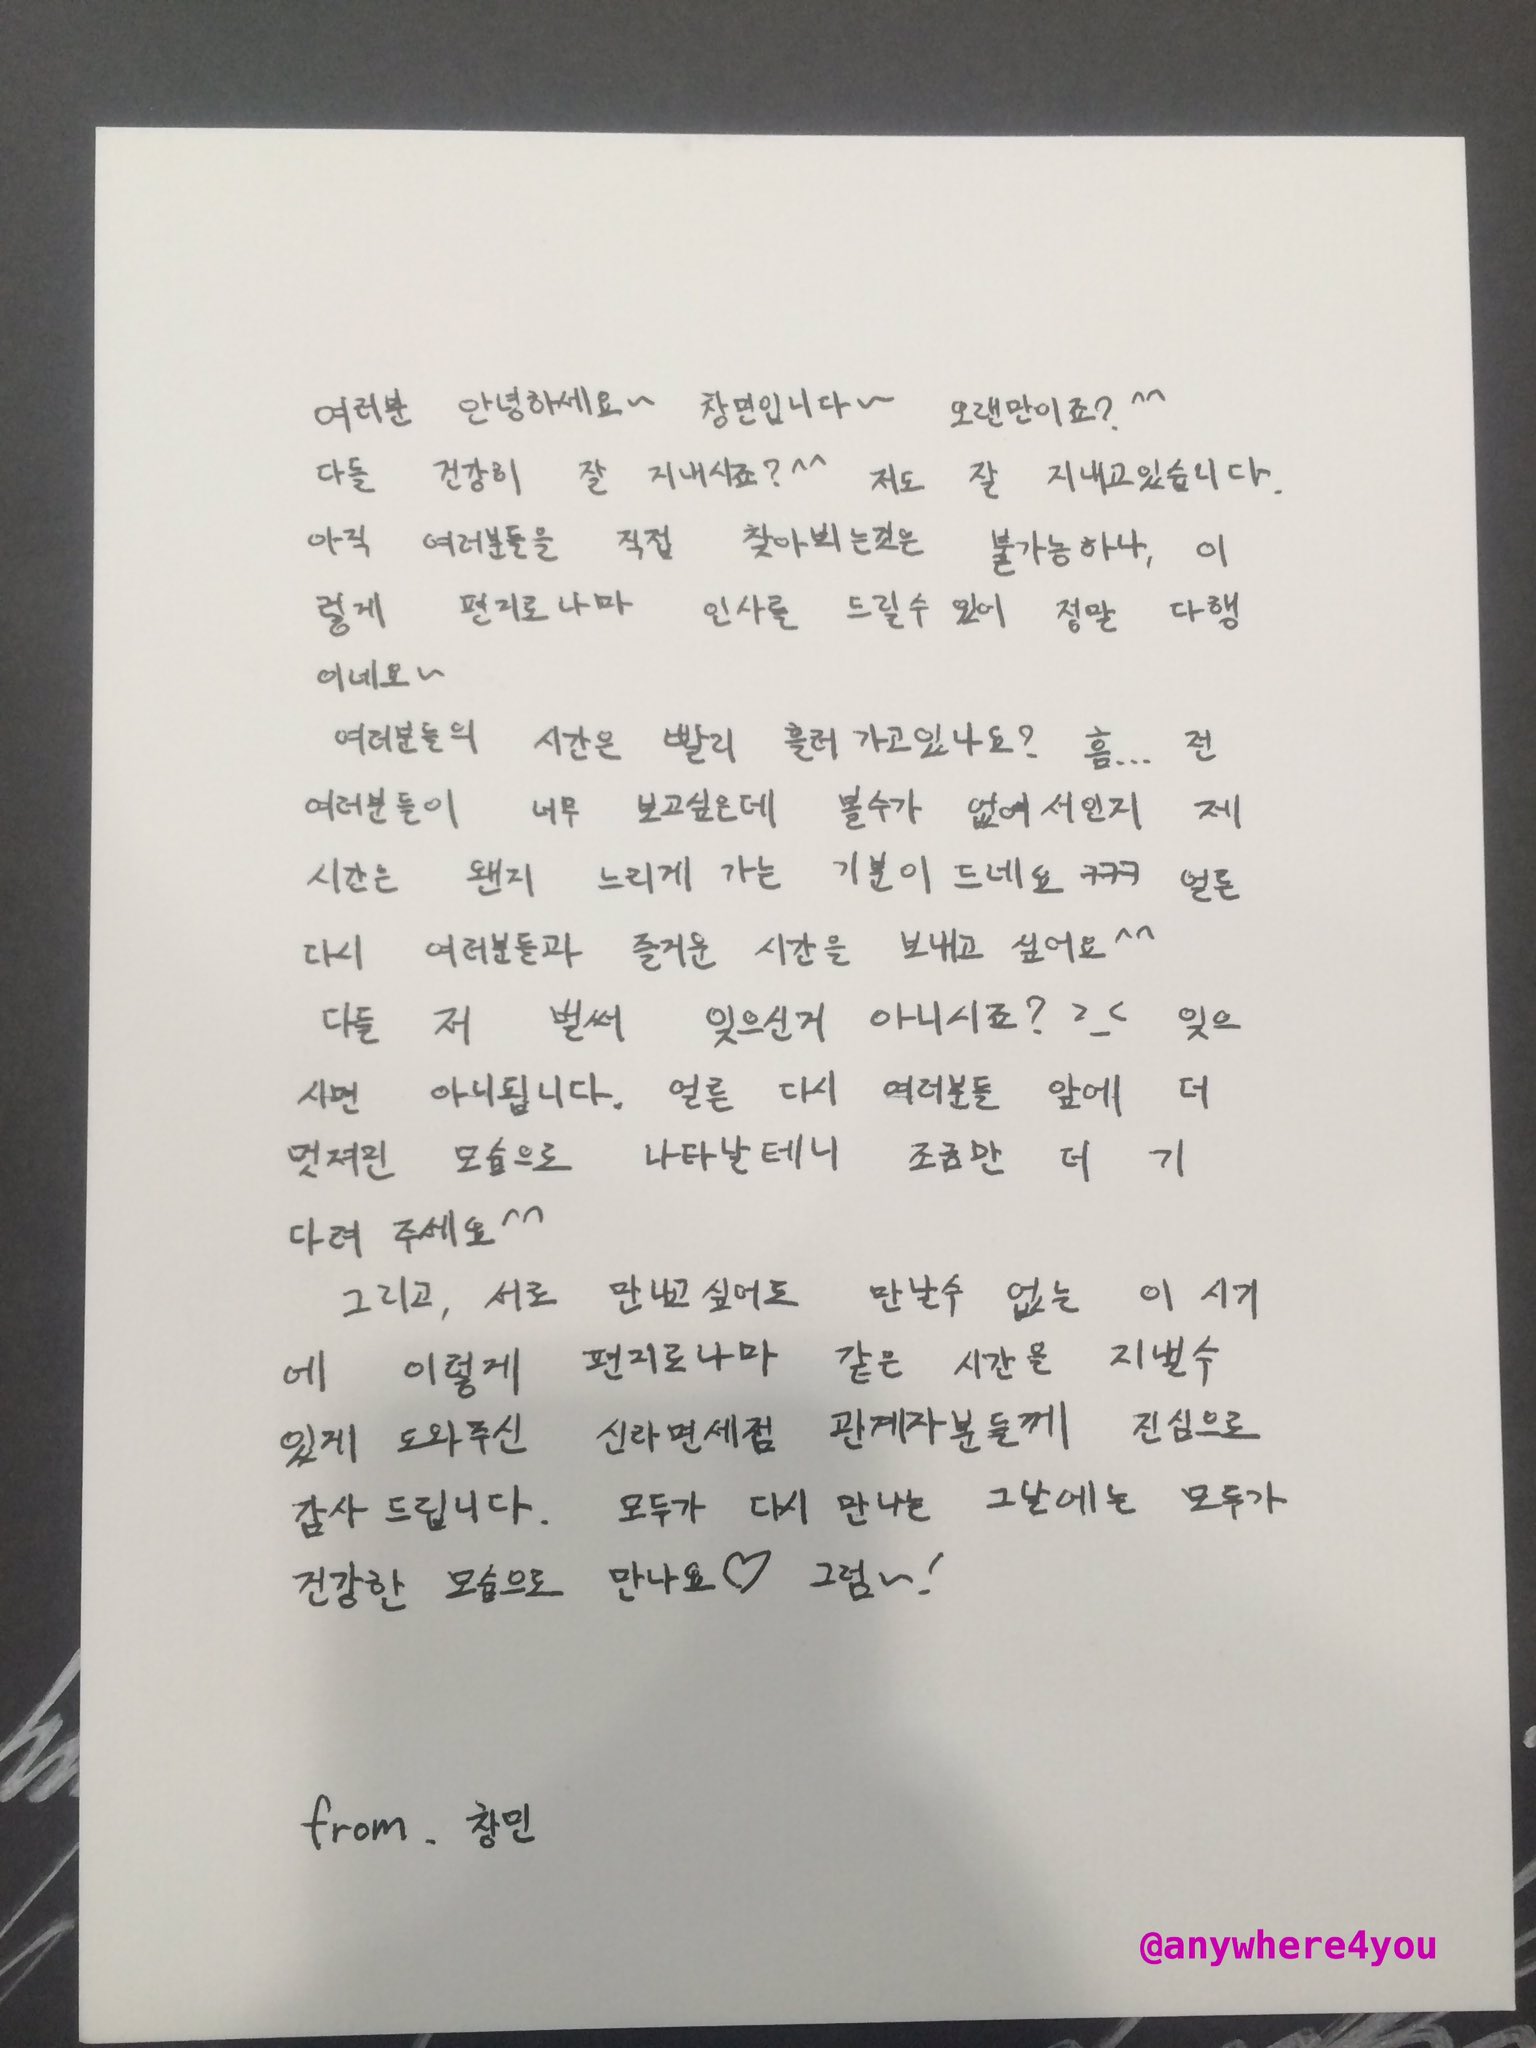 여러분 안녕하세요~ 창민입니다~ 오랜만이죠?^^
다들 건강히 잘 지내시죠?^^ 저도 잘 지내고있습니다.
아직 여러분들을 직접 찾아뵈는것은 불가능하나, 이
렇게 편지로나마 인사를 드릴수 있어 정말 다행
이네요~
여러분들의 시간은 빨리 흘러가고있나요? 흠... 전
여러분들이 너무 보고싶은데 볼수가 없어서인지 제
시간은 왠지 느리게 가는 기분이 드네요 ㅋㅋㅋ 얼른
다시 여러분들과 즐거운 시간을 보내고 싶어요^^
다들 저 벌써 잊으신거 아니시죠? >_< 잊으
시면 아니됩니다. 얼른 다시 여러분들 앞에 더
멋져진 모습으로 나타날테니 조금만 더 기
다려 주세요^^
그리고, 서로 만나고싶어도 만날수 없는 이 시기
에 이렇게 편지로나마 같은 시간을 지낼수
있게 도와주신 신라면세점 관계자분들께 진심으로
감사드립니다. 모두가 다시 만나는 그날에는 모두가
건강한 모습으로 만나요♡ 그럼~!
from. 창민
@anywhere4you